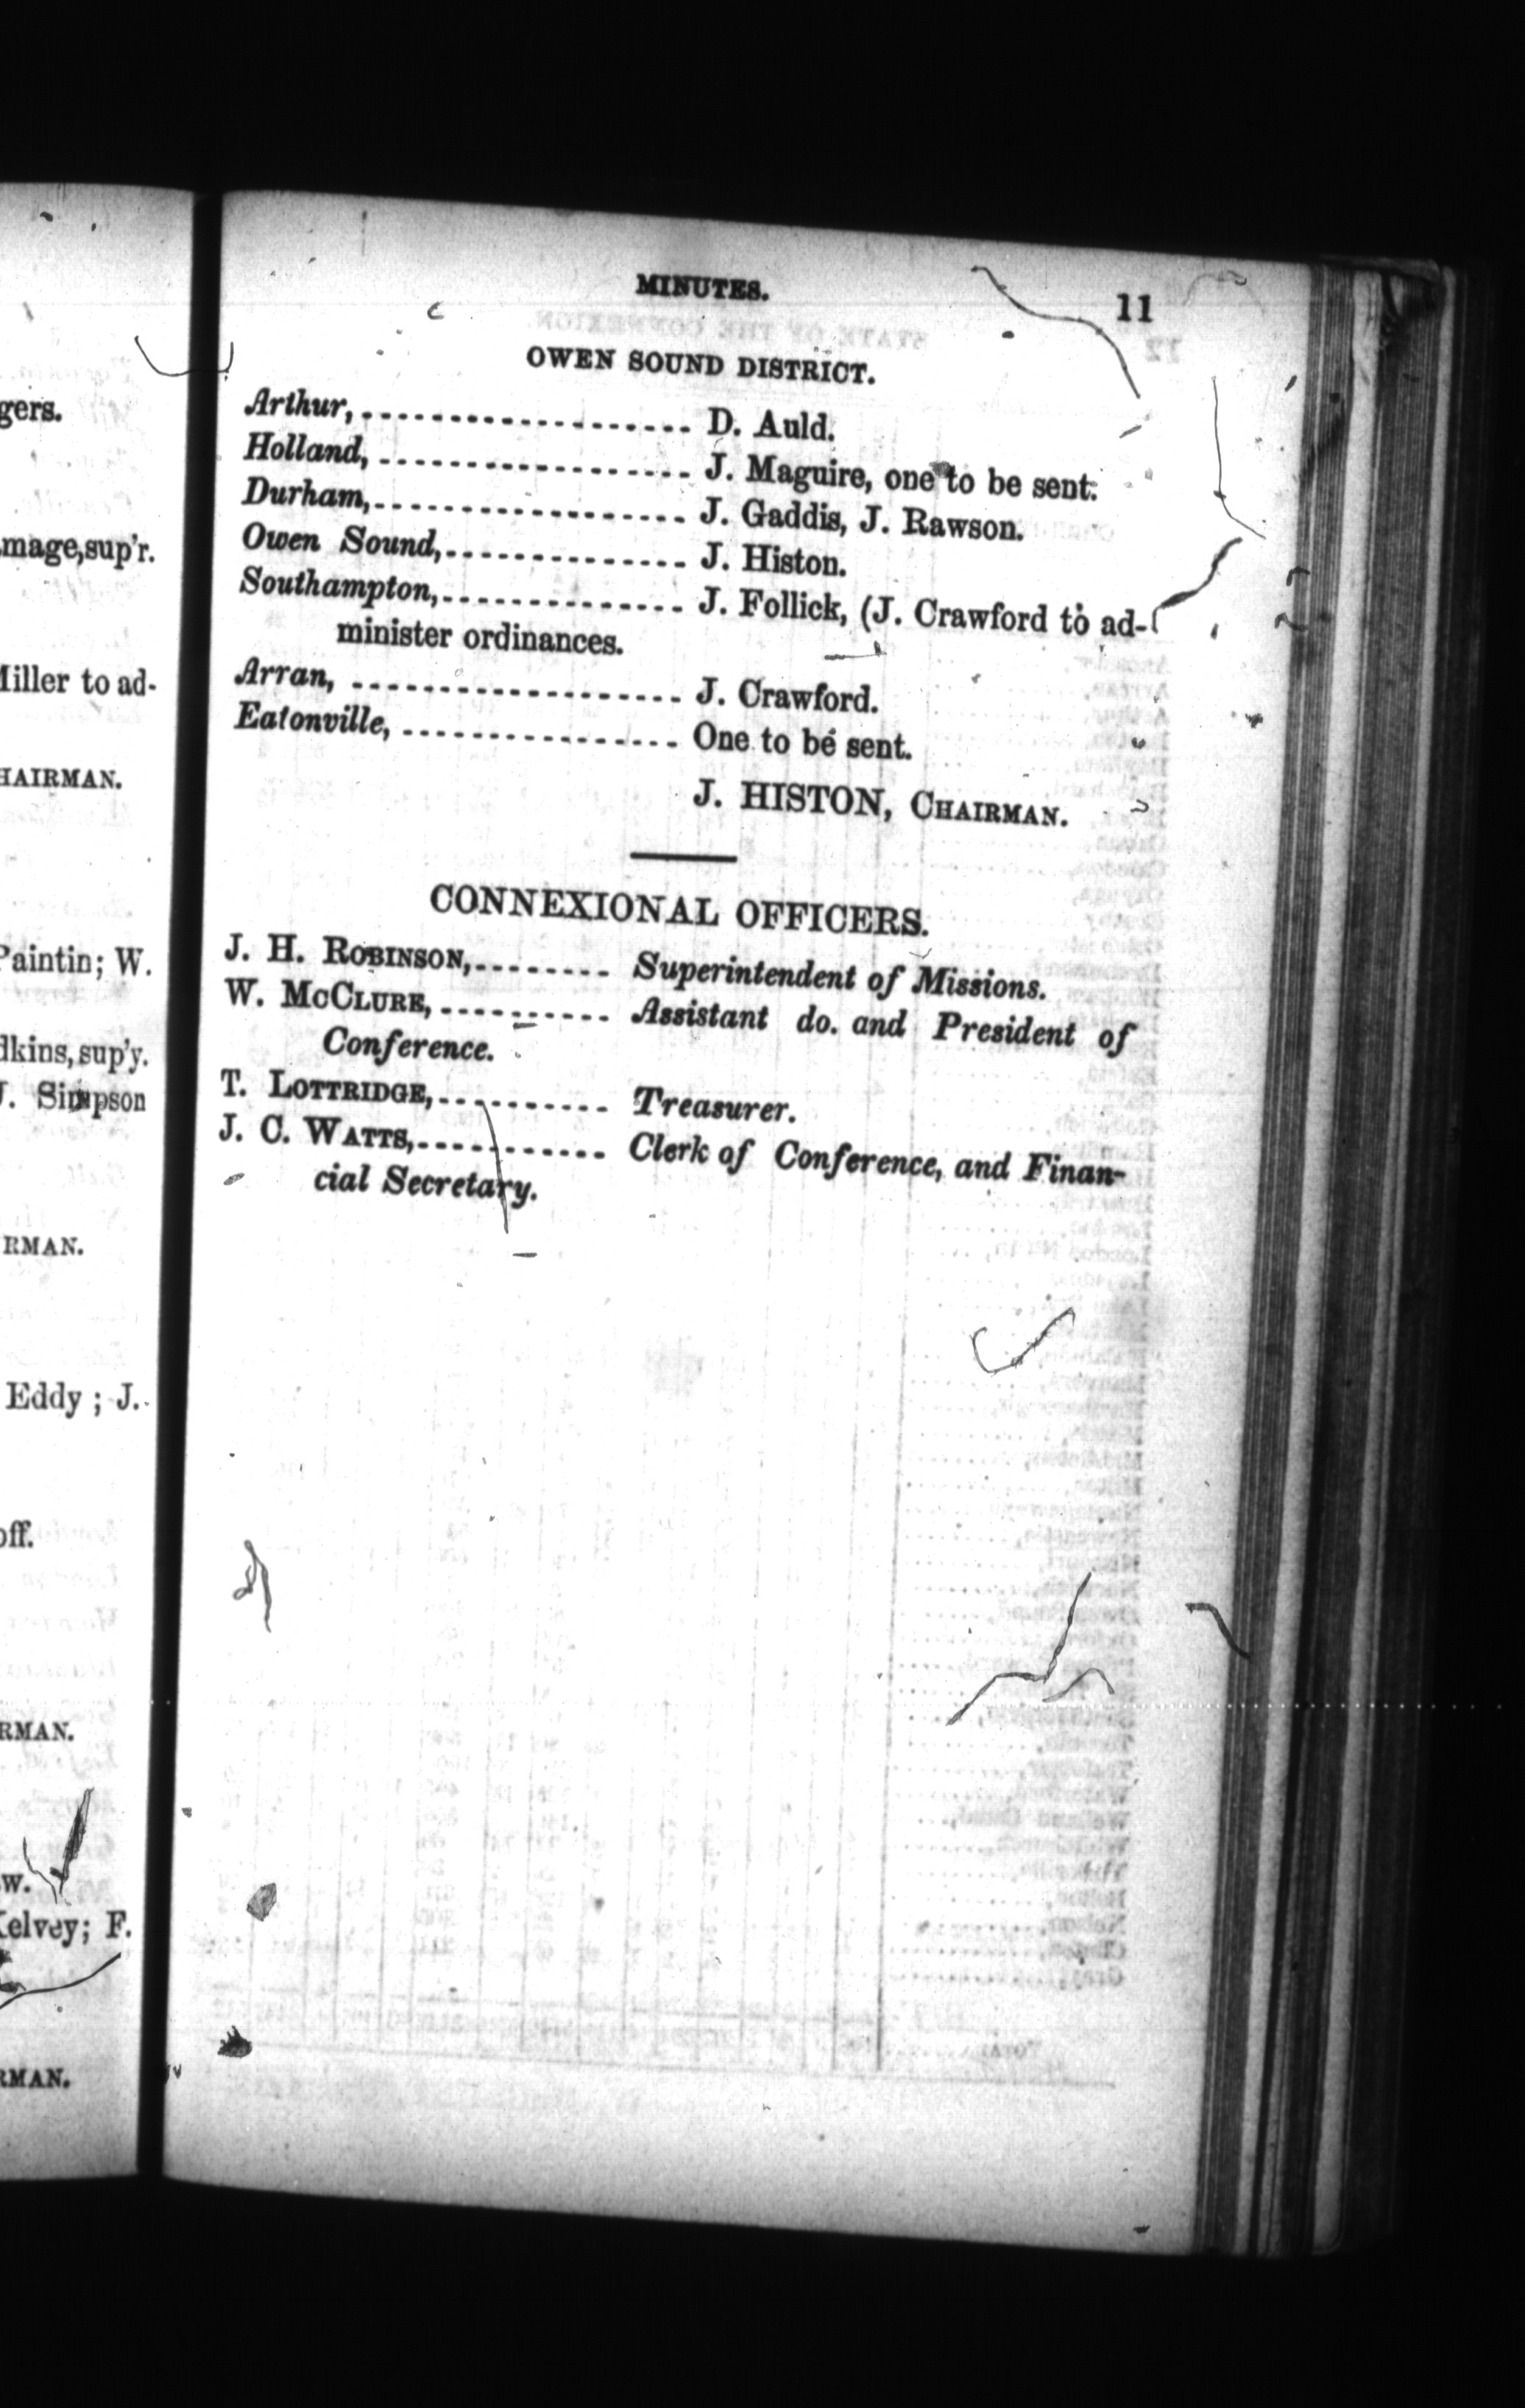 gers.
mage,sup'r.
Miller to ad-
HAIRMAN.
Paintin; W.
dkins,sup'y.
J. Simpson
RMAN.
Eddy ; J.
off.
RMAN.
w.
Kelvey; F.
RMAN.
MINUTES.
11
OWEN SOUND DISTRICT.
Arthur,------------------- D. Auld.
Holland, ------------------ J. Maguire, one to be sent.
Durham,------------------ J. Gaddis, J. Rawson.
Owen Sound,-------------- J. Histon.
Southampton,-------------- J. Follick, (J. Crawford to ad-
minister ordinances.
Arran, ------------------- J. Crawford.
Eatonville, ---------------- One to be sent.
J. HISTON, CHAIRMAN.
CONNEXIONAL OFFICERS.
J. H. ROBINSON,-------- Superintendent of Missions.
W. MCCLURE,---------- Assistant do. and President of
Conference.
T. LOTTRIDGE,---------- Treasurer.
J. C. WATTS,----------- Clerk of Conference, and Finan-
cial Secretary.